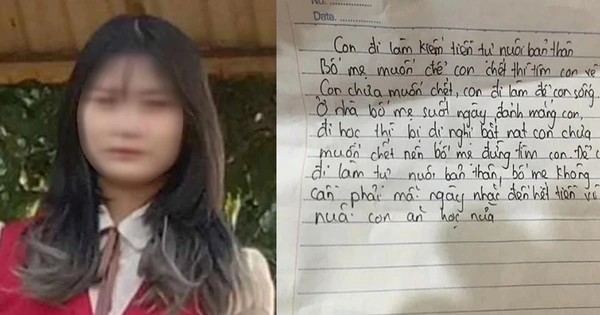 No.
Date.
Con đi làm kiếm tiền tự nuôi bản thân
Bố mẹ muốn để con chết thì tìm con về
Con chưa muốn chết, con đi làm để con sống
Ở nhà bố mẹ suốt ngày đánh mắng con,
đi học thì bị dị nghị bắt nạt con chưa
muốn chết nên bố mẹ đừng tìm con. Để
đi làm tự nuôi bản thân, bố mẹ không
cần phải mỗi ngày nhắc đến hết tiền về
nuôi con ăn học nữa